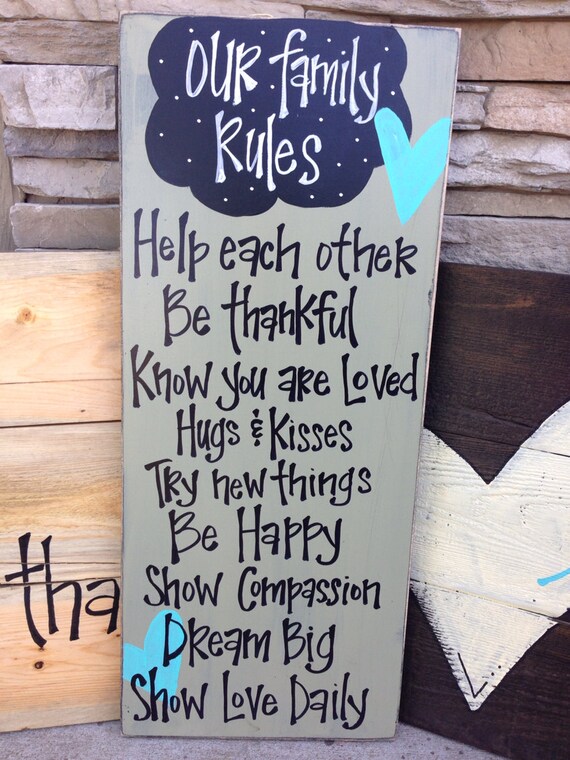 OUR family
Rules
Help each other
Be thankful
Know you are Loved
Hugs & Kisses
Try new things
Be Happy
Show Compassion
Dream Big
Show Love Daily
tha